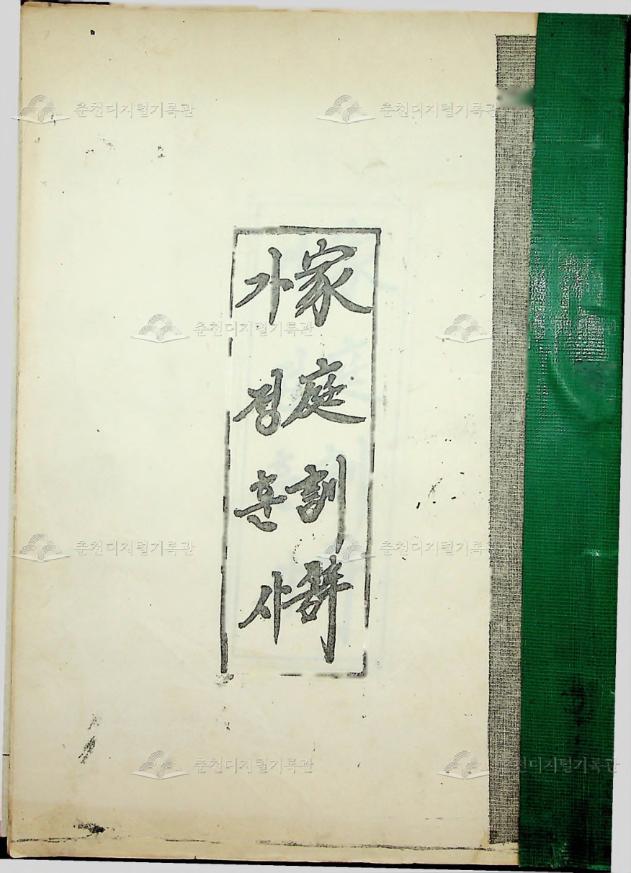 家庭訓辞
가정훈사
춘천디지털기록관
춘천디지털기록관
춘천디지털기록관
춘천디지털기록관
춘천디지털기록관
춘천디지털기록관
춘천디지털기록관
춘천디지털기록관